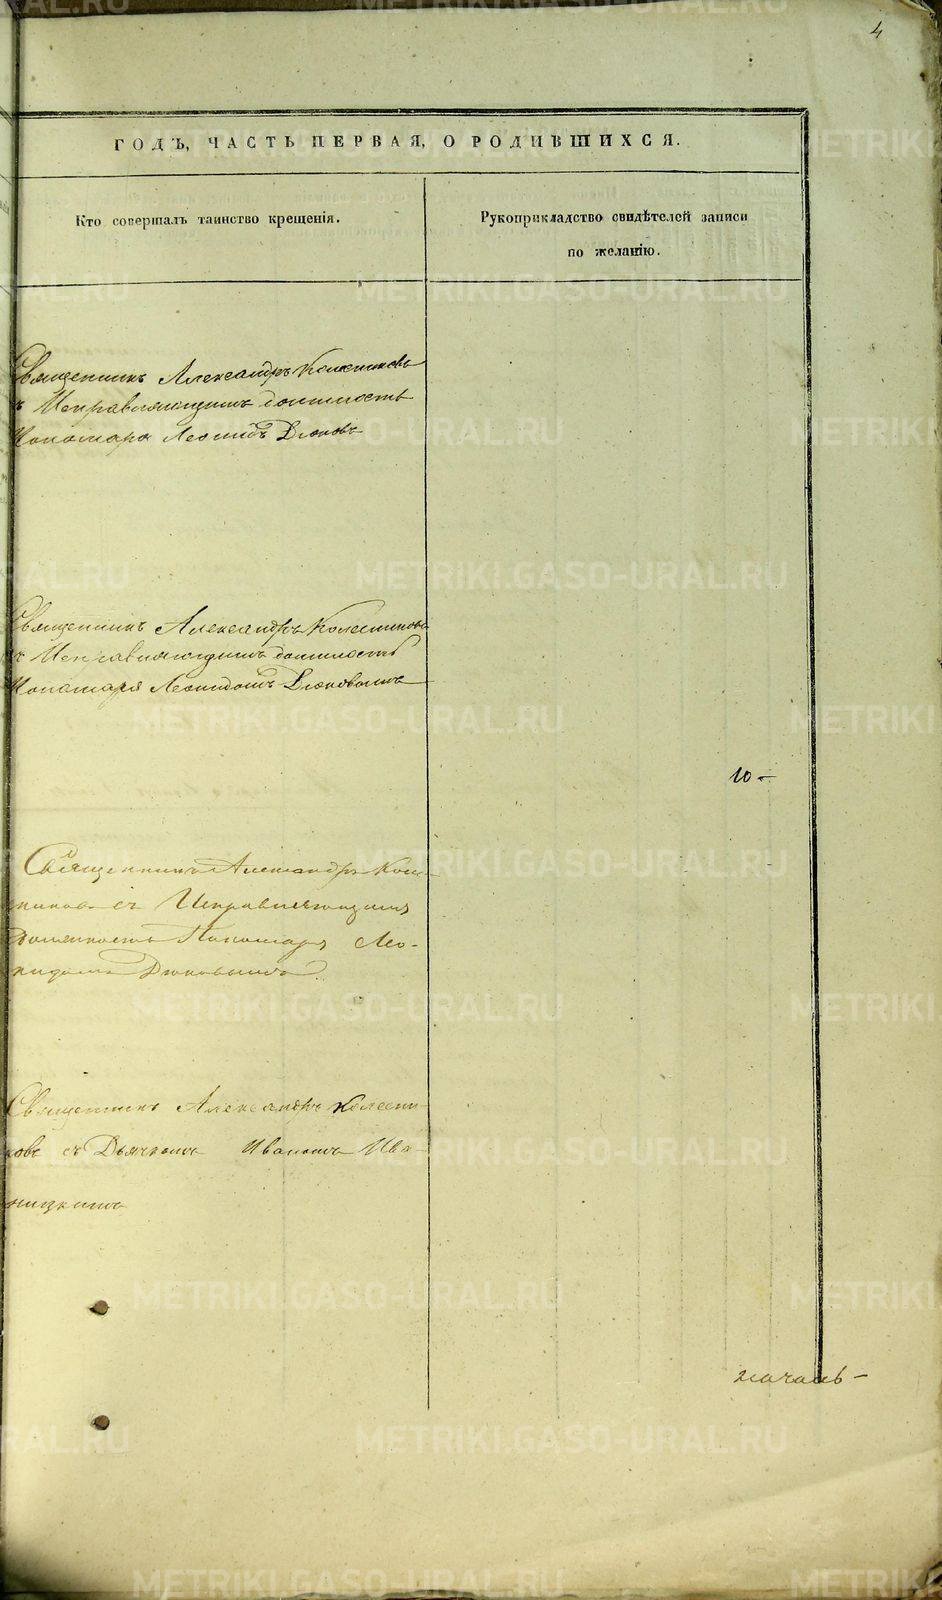 4
ГОДЪ, ЧАСТЬ ПЕРВАЯ, О РОДИВШИХСЯ.
Кто совершалъ таинство крещенія.
Рукоприкладство свидѣтелей записи
по желанію.
Священникъ Александръ Колесниковъ
съ Исправляющимъ должность
Пономаря Леонидъ Дюковъ
Священникъ Александръ Колесниковъ
съ Исправляющимъ должность
Пономаря Леонидомъ Дюковымъ
10-
Священникъ Александръ Колес-
никовъ съ Исправляющимъ
должность Пономаря Лео-
нидомъ Дюковымъ
Священникъ Александръ Колесни-
ковъ съ Дьячкомъ Иваномъ Ива-
ницкимъ
METRIKI.GASO-URAL.RU